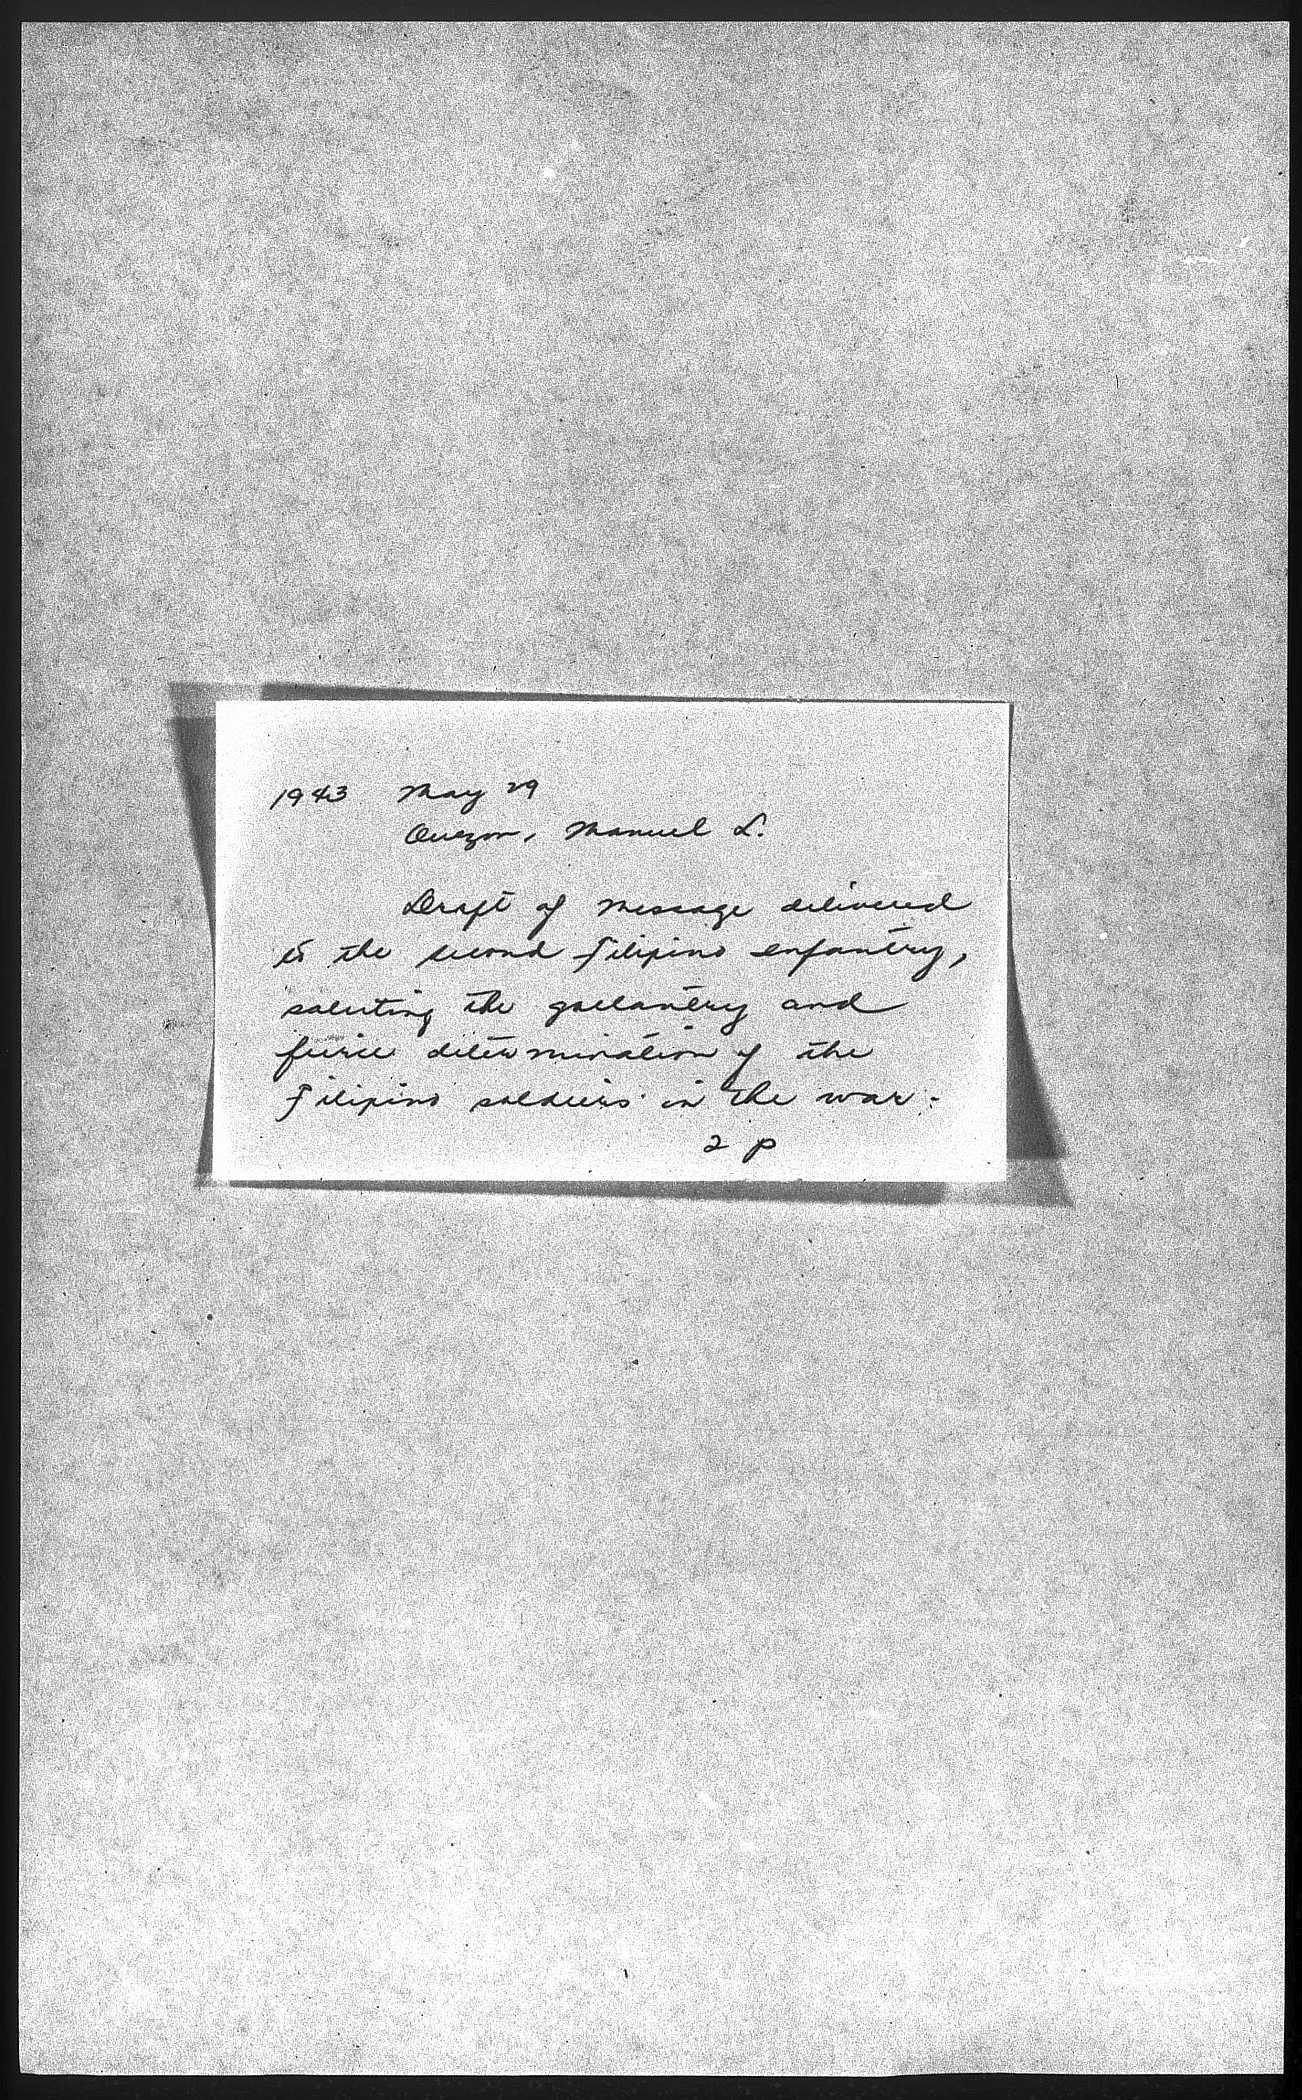 1943 May 29
Quezon, Manuel L.
Draft of message delivered
to the second Filipino Infantry,
saluting the gallantry and
fierce determination of the
Filipino soldiers in the war.
2 p